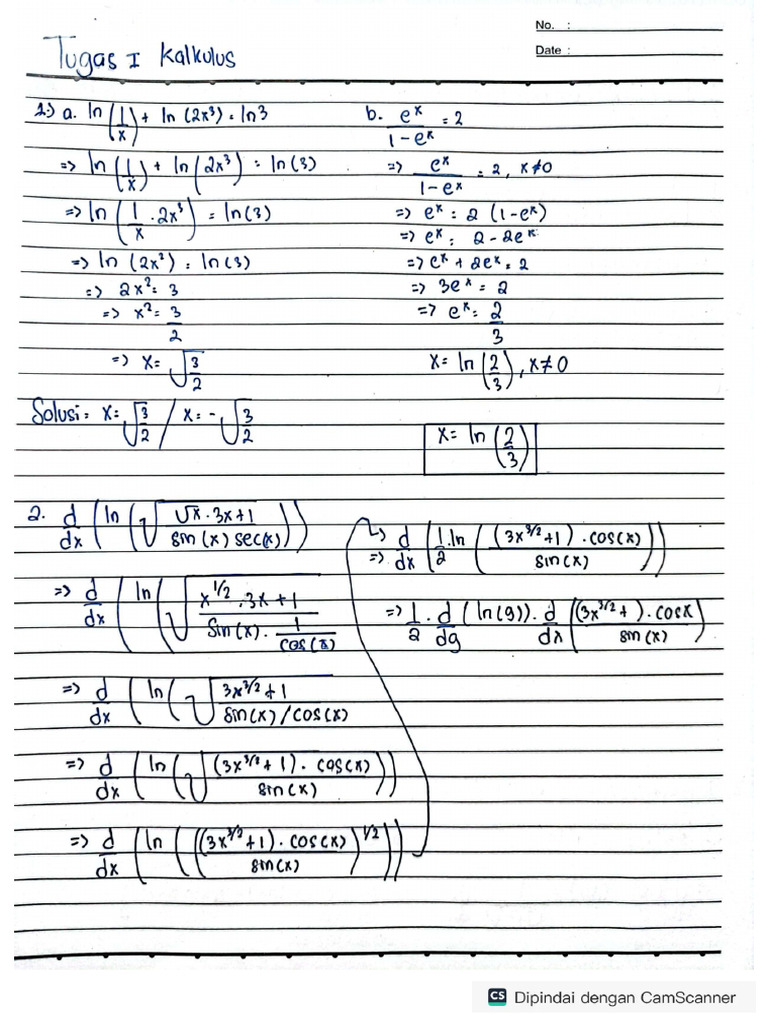 No. :
Date :
Tugas I Kalkulus
1.) a. ln(1/x) + ln (2x³) = ln3
=> ln(1/x) + ln(2x³) = ln(3)
=> ln(1/x · 2x³) = ln(3)
=> ln (2x²) = ln(3)
=> 2x² = 3
=> x² = 3/2
=> x = √(3/2)
Solusi = x = √(3/2) / x = -√(3/2)
b. eˣ/(1-eˣ) = 2
=> eˣ/(1-eˣ) = 2, x≠0
=> eˣ = 2 (1-eˣ)
=> eˣ = 2 - 2eˣ
=> eˣ + 2eˣ = 2
=> 3eˣ = 2
=> eˣ = 2/3
x = ln(2/3), x≠0
x = ln(2/3)
2. d/dx (ln(√(√x · 3x+1 / sin(x) sec(x))))
=> d/dx (ln(√(x^1/2 · 3x + 1 / sin(x) · 1/cos(x)
=> d/dx (ln(√(3x^3/2 + 1 / sin(x)/cos(x)
=> d/dx (ln(√((3x^3/2 + 1) · cos(x) / sin(x))))
=> d/dx (ln(((3x^3/2 + 1) · cos(x) / sin(x))^1/2))
=> d/dx (1/2 · ln((3x^3/2 + 1) · cos(x) / sin(x)))
=> 1/2 · d/dg (ln(g)) · d/dx ((3x^3/2 + ) · cosx / sin(x))
CS Dipindai dengan CamScanner